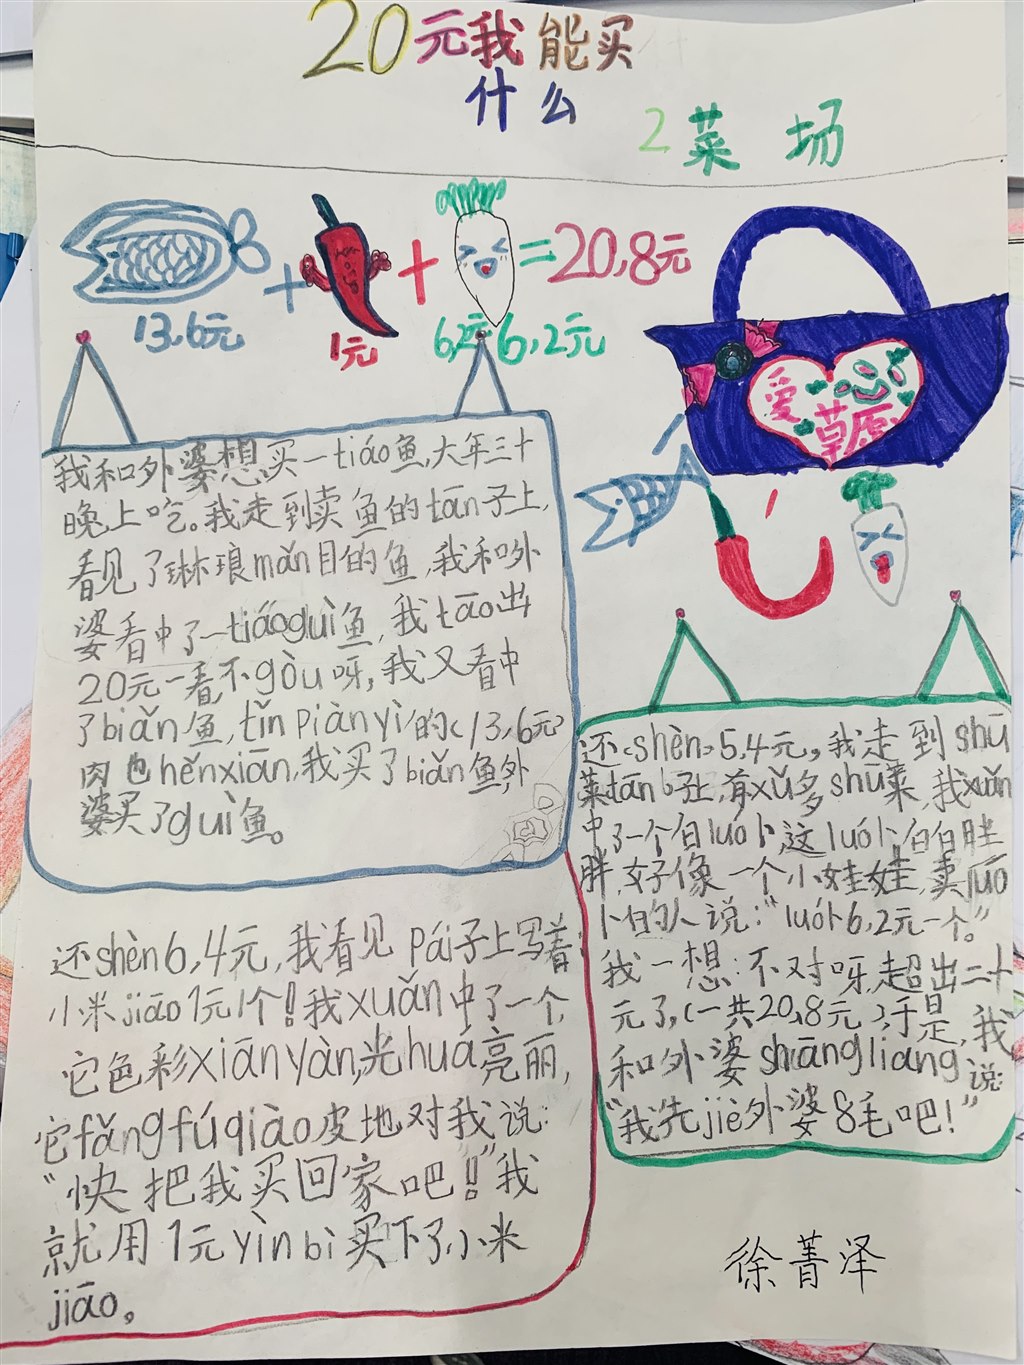 20元我能买
什么
2菜场
13.6元
1元
6.2元6.2元
=20.8元
爱
草原
我和外婆想买一tiáo鱼,大年三十
晚上吃。我走到卖鱼的tān子上,
看见了琳琅mǎn目的鱼,我和外
婆看中了一tiáoguì鱼,我tāo出
20元一看,不gòu呀,我又看中
了biǎn鱼,tǐnpiànyì的(13.6元)
肉也hěnxiān,我买了biǎn鱼,外
婆买了guì鱼。
还shèn6.4元,我看见pái子上写着
小米jiāo1元1个!我xuǎn中了一个,
它色彩xiānyàn,光huá亮丽,
它fǎngfúqiào皮地对我说:
“快把我买回家吧!”我
就用1元yìnbì买下了小米
jiāo。
还<shèn>5.4元,我走到shū
菜tān子上,有xǔ多shū菜,我xuǎn
中了一个白luó卜,这luó卜白白胖
胖,好像一个小娃娃,卖luó
卜的人说:“luó卜6.2元一个。”
我一想:不对呀,超出二十
元了,(一共20.8元),于是,我
和外婆shiāngliang说:
“我先jiè外婆8毛吧!”
徐菁泽